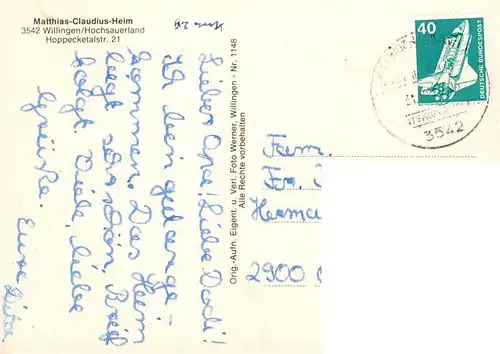 Matthias-Claudius-Heim
3542 Willingen/Hochsauerland
Hoppecketalstr. 21
Lieber Opa! Liebe Dodi!
Ich bin gut ange-
kommen. Das Heim
liegt schön, Brief
folgt. Viele, liebe
Grüße. Eure
Orig.-Aufn. Eigent. u. Verl. Foto Werner, Willingen - Nr. 1148
Alle Rechte vorbehalten
40
DEUTSCHE BUNDESPOST
3542
Fam.
Fr.
Herma
2900